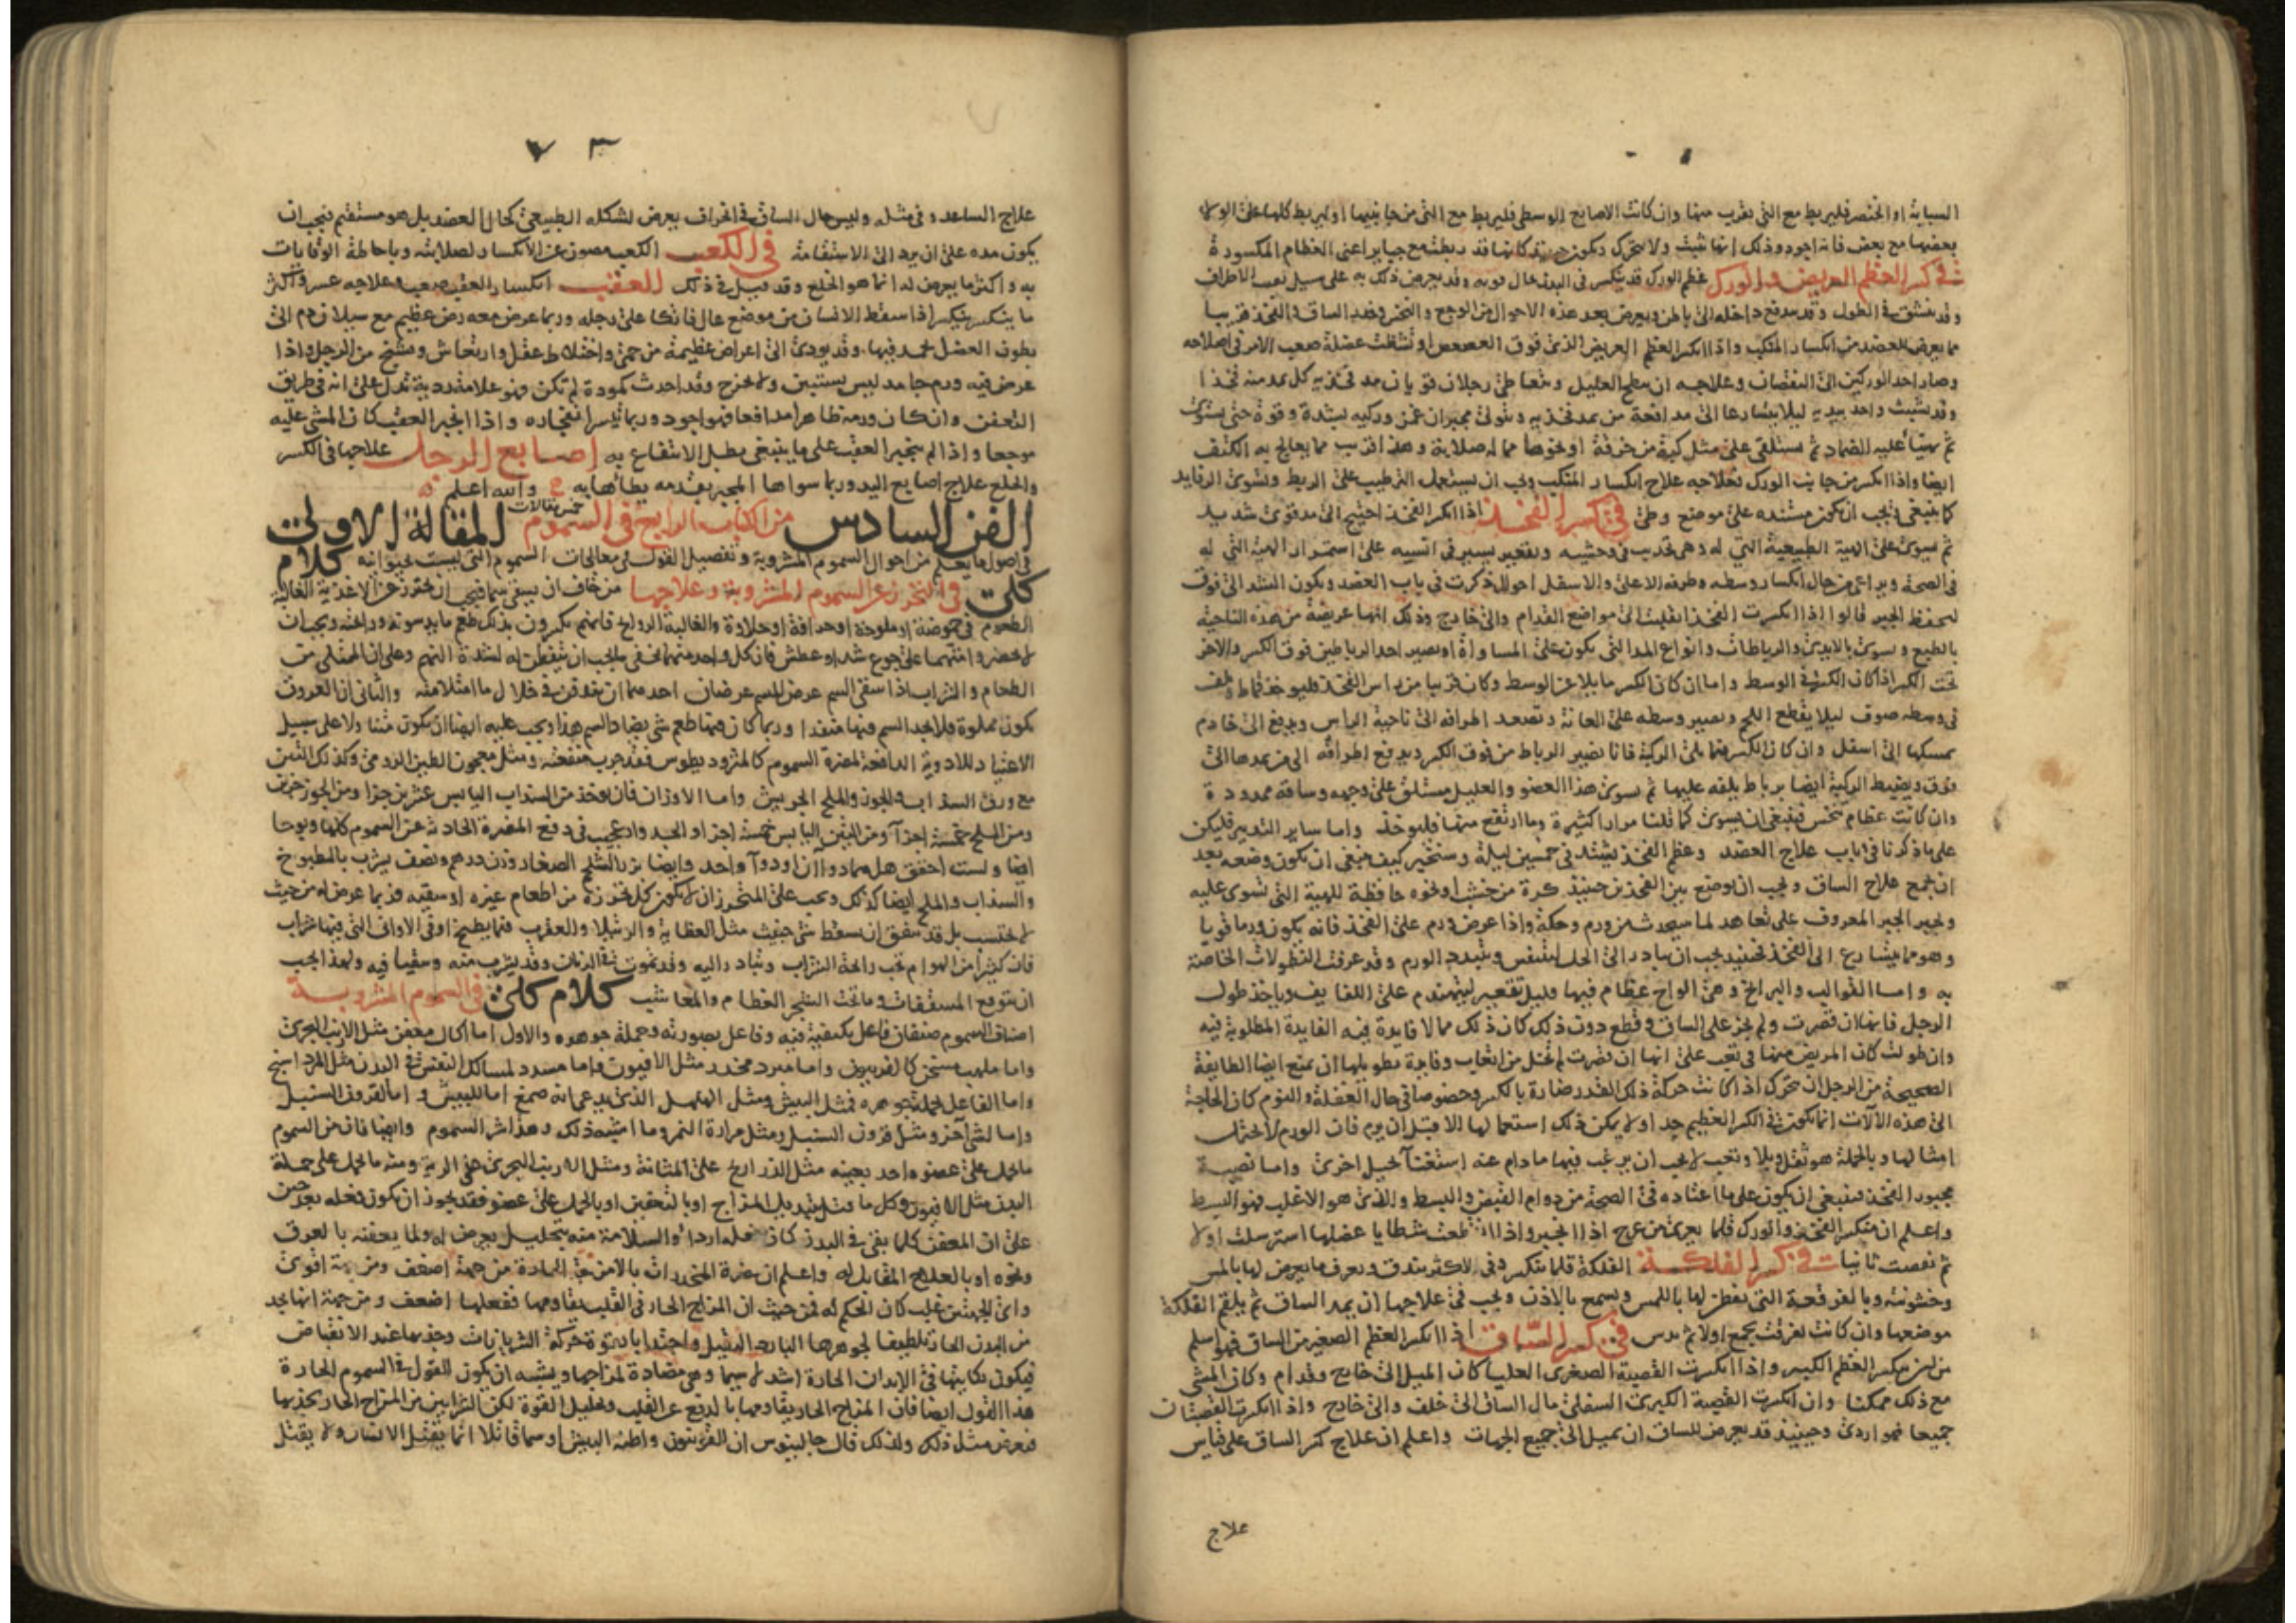 السبابة او الخنصر فليربط مع التي تقرب منها وان كانت الاصابع الوسطى فليربط مع التي من جانبيها او ليربط كلها على الولا
بعضها مع بعض فانه اجود وذلك انها تثبت ولا تتحرك ويكون كانها قد ربطت مع جباير اعنى العظام المكسورة
فى كسر العظم العريض والورك عظم الورك قد ينكسر فى البدن حال قد يعرض ذلك به على سبيل الاطراف
وقد ينشق فى الطول وقد يندفع داخله الى باطن ويعرض بعد هذه الاحوال من الوجع و الساق و الفخذ قريبا
مما يعرض للعضد من انكسار المنكب واذا انكسر العظم العريض الذى فوق العصعص او تشظت عضلة صعب الامر فى اصلاحه
وصار احد الوركين الى النقصان وعلاجه ان يبطح العليل و يتعاطى رجلان قويان مد فخذيه كل يمد منه فخذا
ثم يهيا عليه الضماد ثم يستلقى على مثل كرة من خرقة او نحوها مما له صلابة وهذا اقرب مما يعالج به الكتف
ايضا واذا انكسر من جانب الورك فعلاجه علاج انكسار المنكب ويجب ان يستعمل على الربط وتسوى الرفايد
كما ينبغى ويجب ان يكون مستنده على موضع وطى فى كسر الفخذ اذا انكسر الفخذ احتيج الى مد قوى شديد
ثم يسوى على الهية الطبيعية التى له وهى تحديب فى وحشيه وتقعير يسير فى انسيه على استمرار الهية التى له
فى الصحة ويراعى من حال انكسار وسطه وطرفه الاعلى والاسفل احوال ذكرت فى باب العضد ويكون الشد الى فوق
بالطبع و يسوى بالايدى والرباطات وانواع المد التى يكون على المساواة او بصير احد الرباطين فوق الكسر والاخر
تحت الكسر اذا كان الكسر فى الوسط واما ان كان الكسر مايلا عن الوسط وكان قريبا من راس الفخذ فليوخذ قماط و يلف
فى وسطه صوف ليلا يقطع اللحم ويصير وسطه على العانة وتصعد اطرافه الى ناحية الراس ويدفع الى خادم
يمسكها الى اسفل وان كان الكسر مما يلى الركبة فانا نصير الرباط من فوق الكسر ويدفع اطرافه الى من يمدها الى
فوق ويضبط الركبة ايضا برباط يلفه عليها ثم يسوى هذا العضو والعليل مستلق على وجهه وساقه ممدودة
وان كانت عظام تنخس فينبغى ان يسوى كما قلنا مرارا كثيرة وما ارتفع منها فليوخذ واما ساير التدبير فليكن
على ما ذكرنا فى باب علاج العضد وعظم الفخذ يشتد فى خمسين ليلة وسنخبر كيف ينبغى ان يكون وضعه بعد
ان نجمع علاج الساق ويجب ان يوضع بين الفخذين حينئذ كرة من خشب او نحوه حافظة للهية التى تسوى عليه
ويجبر الجبر المعروف على تعاهد لما سيحدث من ورم وحكة واذا عرض ورم على الفخذ فانه يكون ورما قويا
به واما القوالب والبرابخ وهى الواح عظام فيها قليل تقعير ليتهندم على اللفايف وياخذ طول
الرجل فانها ان قصرت ولم تجز على الساق وقطع دون ذلك كان ذلك مما لا فايدة فيه الفايدة المطلوبة فيه
وان طولت كان المريض منها فى تعب على انها ان قصرت لم تخل من اتعاب وفايدة تطويلها ان يمنع ايضا الطايفة
الصحيحة من الرجل ان تتحرك اذا كانت حركة ذلك القدر ضارة بالكسر وخصوصا فى حال الغفلة والنوم كان الحاجة
الى هذه الالات انما يكون فى الكسر العظيم جدا ولا يمكن ذلك استعمالها الا قبل ان يرم فان الورم لا يحتمل
امثالها وبالجملة هو ثقل وبلا وتعب لا يجب ان يرغب فيها ما دام عنه استغنا بحيل اخرى واما نصبة
مجبور الفخذ فينبغى ان يكون على ما اعتاده فى الصحة من دوام القبض والبسط والذى هو الاغلب فهو البسط
واعلم ان منكسر الفخذ والورك قلما يعرى من عرج اذا انجبر واذا انقطعت شظايا عضلها استرسلت اولا
ثم نقصت ثانيا فى كسر الفلكة الفلكة قلما ينكسر وفى الاكثر يندق ويعرف ما يعرض لها بالمس
وخشونته وبالفرقعة التى يفطن لها باللمس ويسمع بالاذن ويجب فى علاجها ان يمد الساق ثم يلقم الفلكة
موضعها وان كانت تفرقت يجمع اولا ثم يدس فى كسر الساق اذا انكسر العظم الصغير من الساق فهو اسلم
من ان ينكسر العظم الكبير واذا انكسرت القصبة الصغرى العليا كان الميل الى خارج وقدام وكان المشى
مع ذلك ممكنا وان انكسرت القصبة الكبرى السفلى مال الساق الى خلف والى خارج واذا انكسرت القصبتان
جميعا فهو اردى وحينئذ قد يعرض للساق ان يميل الى جميع الجهات واعلم ان علاج كسر الساق على قياس
علاج
علاج الساعد وفى مثله وليس حال الساق فى انحراف يعرض لشكله الطبيعى كحال العضد بل هو مستقيم فيجب ان
يكون مده على ان يرد الى الاستقامة فى الكعب الكعب مصون عن الانكسار لصلابته وباحاطة الوقايات
به واكثر ما يعرض له انما هو الخلع وقد قيل فى ذلك العقب انكسار العقب صعب وعلاجه عسر واكثر
ما ينكسر ينكسر اذا سقط الانسان من موضع عال فاتكا على رجله وربما عرض معه رض عظيم مع سيلان دم الى
بطون العضل يجمد فيها وقد يودى الى اعراض عظيمة من حمى واختلاط عقل وارتعاش وتشنج من الرجل واذا
عرض فيه ورم جامد ليس يستبين ولا يخرج وقد احدث كمودة لم تكن فهو علامة ردية تدل على انه فى طريق
التعفن وان كان ورمه ظاهرا مدافعا فهو اجود وربما تيسر انفجاره واذا انجبر العقب كان المشى عليه
موجعا واذا لم ينجبر العقب على ما ينبغى بطل الانتفاع به اصابع الرجل علاجها فى الكسر
والخلع علاج اصابع اليد وربما سواها المجبر بقدمه يطاها به والله اعلم
الفن السادس من الكتاب الرابع فى السموم خمس مقالات المقالة الاولى
فى اصول ما يعلم من احوال السموم المشروبة وتفصيل القول فى معالجات السموم التى ليست بحيوانيه كلام
كلى فى التحرز عن السموم المشروبة وعلاجها من خاف ان يسقى سما فيجب ان يحترز عن الاغذية الغالبة
الطعوم فى حموضة او ملوحة او حرافة او حلاوة والغالبة الروايح فانهم يكسرون بذلك طعم ما يدسونه ورايحته ويجب ان
الطعام والشراب اذا سقى السم عرض للسم عرضان احدهما ان يندفن فى خلال ما امتلا منه والثانى ان العروق
يكون مملوة فلا يجد السم فيها منفذا وربما كان فيما طعم شى يضاد السم هذا ويجب عليه ايضا ان يكون
الاعتياد للادوية الدافعة لمضرة السموم كالمثروديطوس فقد جرب منفعته ومثل معجون الطين الرومى وكذلك التين
مع ورق السذاب والجوز والملح الجريش واما الاوزان فان يوخذ من السذاب اليابس عشرين جزا ومن الجوز جزين
ومن الملح خمسة اجزا ومن التين اليابس خمسة اجزا و عجيب فى دفع المضرة الحادثة عن السموم كلها
والسذاب والملح ايضا كذلك ويجب على المتحرز ان لا يكون كل تحرزه من اطعام غيره او سقيه فربما عرض له من حيث
لا يحتسب بل قد يتفق ان يسقط شى خبيث مثل العظاية والرتيلا والعقرب فيما يطبخ او فى الاوانى التى فيها شراب
فان كثيرا من الهوام يحب رايحة الشراب ويبادر اليه وقد يموت فى الدنان وقد يشرب منه وتقيا فيه ولهذا يجب
ان يتوقع المسقفات وما تحت الشجر العظام والمعاشب كلام كلى فى السموم المشروبة
اصناف السموم صنفان فاعل بكيفية فيه وفاعل بصورته وجملة جوهره والاول اما اكال معفن مثل الارنب البحرى
واما ملهب مسخن كالفربيون واما مبرد مخدر مثل الافيون واما مسدد لمسالك النفس فى البدن مثل المرداسنج
واما الفاعل بجملة جوهره فمثل البيش ومثل الهلهل الذى يدعى انه صمغ اما للبيش و اما لقرون السنبل
واما لشى اخر ومثل قرون السنبل ومثل مرارة النمر وما اشبه ذلك وهذا شر السموم وايضا فان من السموم
ما يحمل على عضو واحد بعينه مثل الذراريح على المثانة ومثل الارنب البحرى على الرية ومنه ما يحمل على جملة
البدن مثل الافيون وكل ما يقتل بتبديل المزاج او بالتعفين او بالحمل على عضو فقد يجوز ان يكون فعله بعد حين
على ان المعفن كلما بقى فى البدن كان فعله اردا والسلامة منه بتحليل يعرض له ولما يعفنه بالعرق
ونحوه او بالعلاج المقابل له واعلم ان مضرة المخدرات بالامزجة الحادة من جهة اضعف ومن جهة اقوى
واى الجهتين غلب كان الحكم له فمن حيث ان المزاج الحار فى القلب يقاومها ففعلها اضعف ومن جهة انها يجد
من البدن الحار تلطيفا لجوهرها البارد الثقيل واجتذابا بقوة حركة الشريانات وجذبها عند الانقباض
فيكون نكايتها فى الابدان الحارة اشد لا سيما وهى مضادة لمزاجها ويشبه ان يكون القول فى السموم الحارة
هذا القول ايضا فان المزاج الحار يقاومها بالدفع عن القلب وتحليل القوة لكن الشرايين من المزاج الحار تجذبها
فيعرض مثل ذلك ولذلك قال جالينوس ان القونيون واظنه البيش او سما قاتلا انما يقتل الانسان ولا يقتل